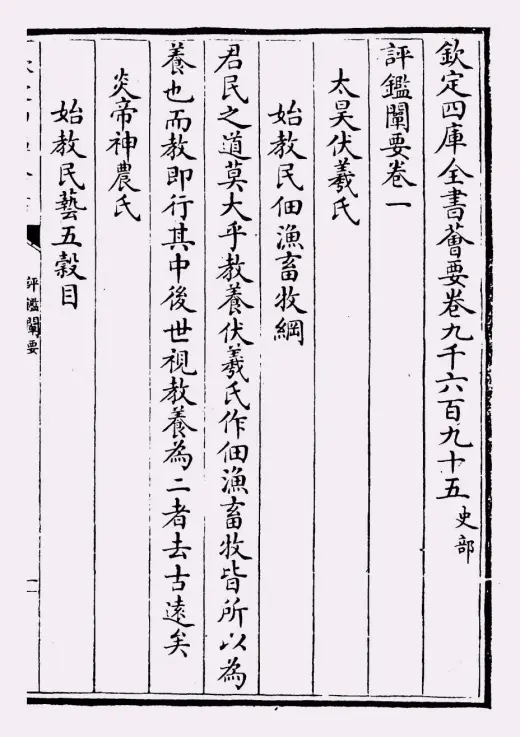 欽定四庫全書薈要卷九千六百九十五 史部
評鑑闡要卷一
太昊伏羲氏
始教民佃漁畜牧綱
君民之道莫大乎教養伏羲氏作佃漁畜牧皆所以為
養也而教即行其中後世視教養為二者去古遠矣
炎帝神農氏
始教民藝五穀目
評鑑闡要
一